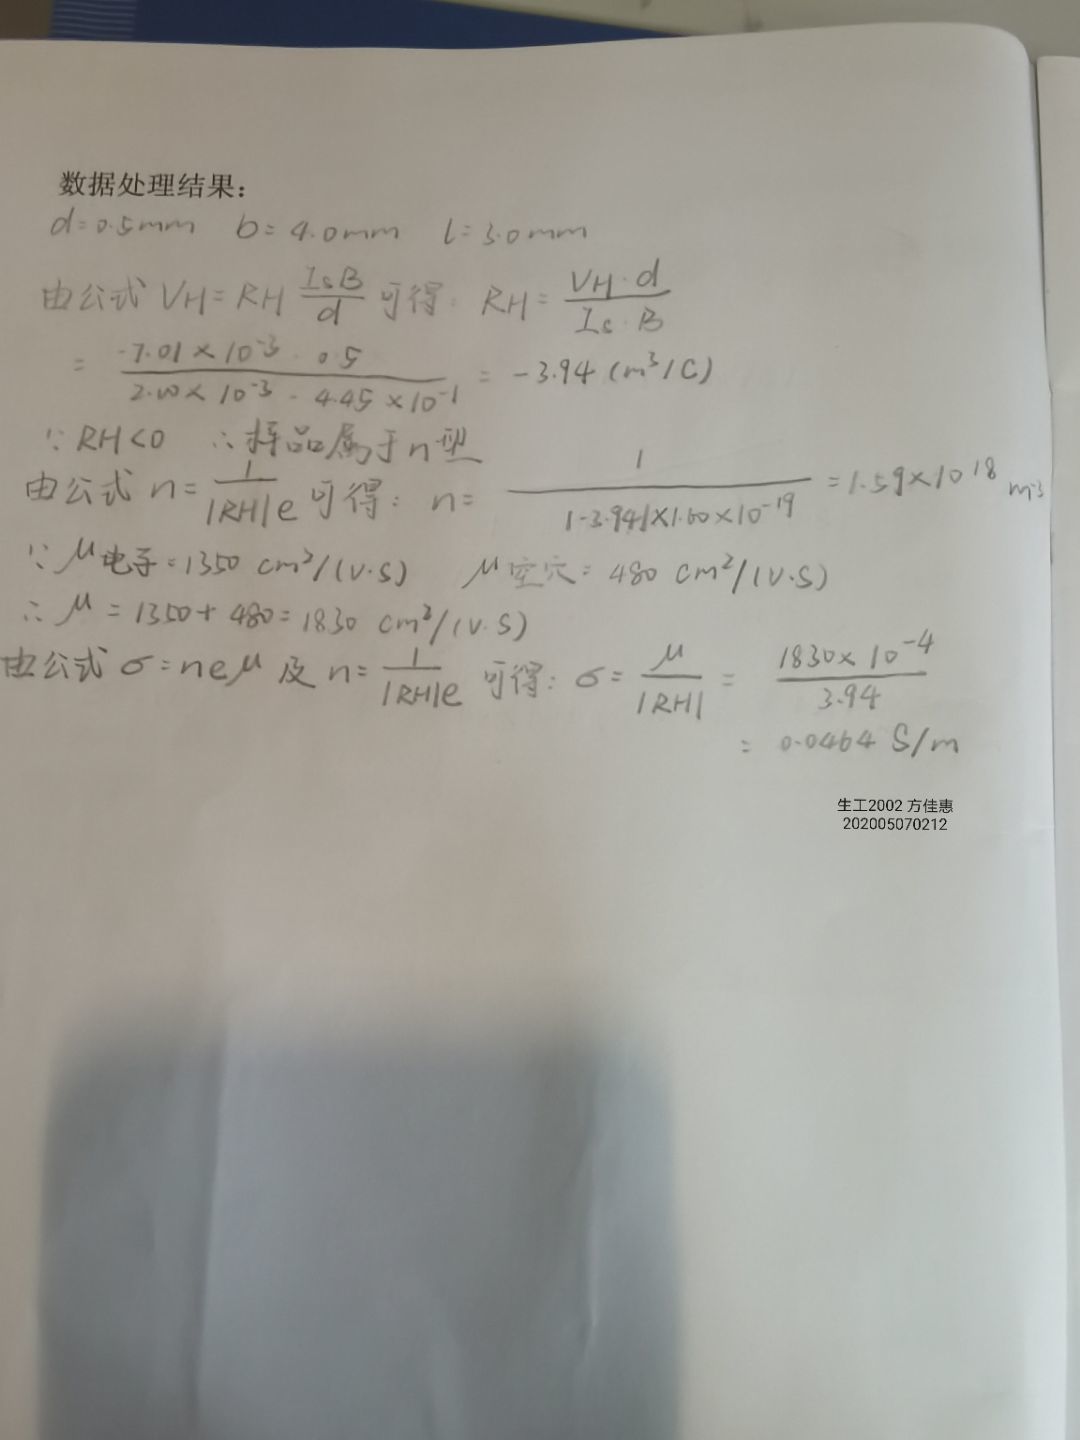 数据处理结果：
d=0.5mm b=4.0mm l=3.0mm
由公式 VH=RH IsB/d 可得: RH= VH·d/Is·B
= -7.01×10-3·0.5/2.00×10-3·4.45×10-1 = -3.94 (m3/C)
∵RH<0 ∴样品属于n型
由公式 n= 1/|RH|e 可得: n= 1/|-3.94|×1.60×10-19 =1.59×10 18 m-3
∵ μ电子=1350 cm2/(V·S) μ空穴=480 cm2/(V·S)
∴ μ = 1350+480=1830 cm2/(V·S)
由公式 σ=neμ 及 n= 1/|RH|e 可得: σ= μ/|RH| = 1830×10-4/3.94
= 0.0464 S/m
生工2002 方佳惠
202005070212